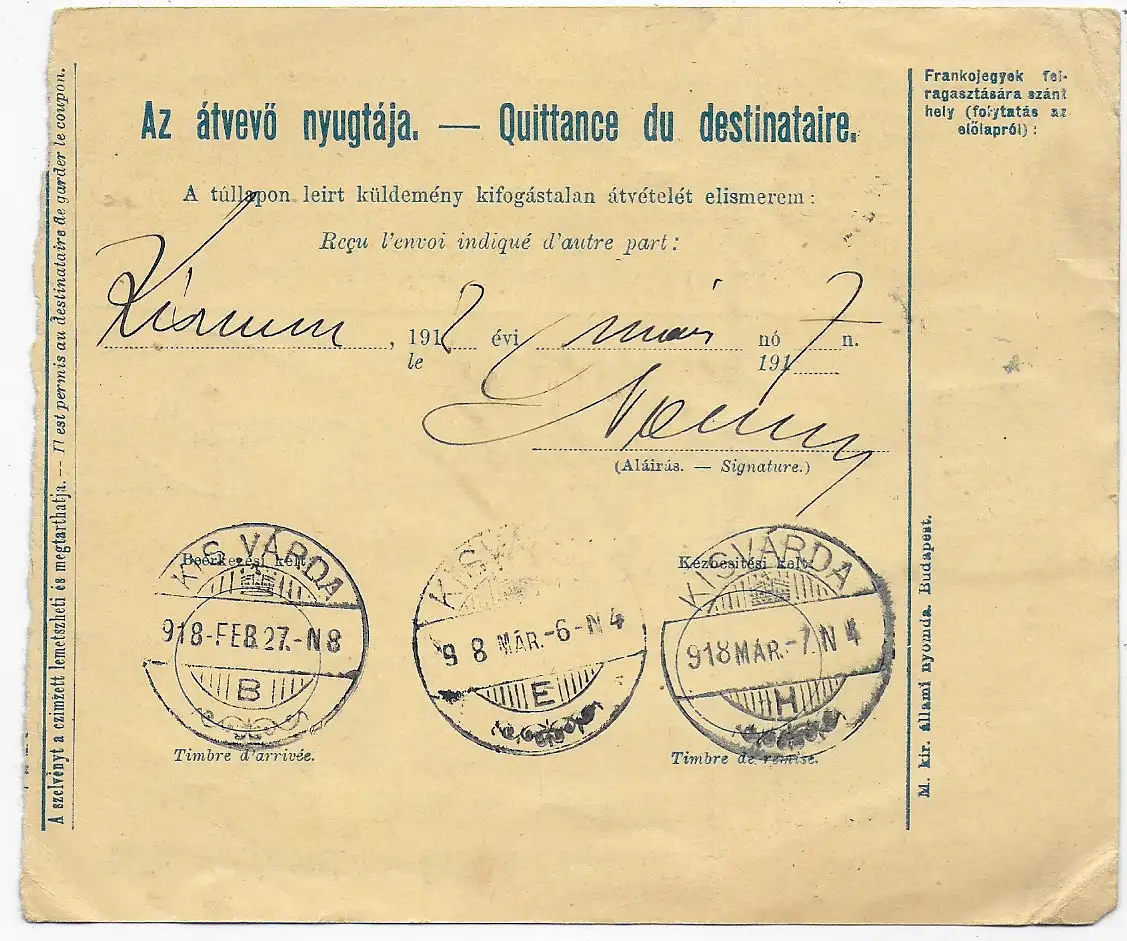 Az átvevő nyugtája. — Quittance du destinataire.
A túllapon leirt küldemény kifogástalan átvételét elismerem:
Reçu l'envoi indiqué d'autre part:
, 1918 évi nó 7 n.
le 191
(Aláirás. — Signature.)
Beérkezési kelt
KISVÁRDA
918-FEB.27.-N8
B
Timbre d'arrivée.
KISVÁ
9 8 MÁR.-6-N4
E
Kézbesitési kelt
KISVÁRDA
918 MÁR.-7.N 4
H
Timbre de remise.
Frankojegyek fel-
ragasztására szánt
hely (folytatás az
előlapról):
M. kir. állami nyomda. Budapest.
A szelvényt a czimzett lemetszheti és megtarthatja. — Il est permis au destinataire de garder le coupon.